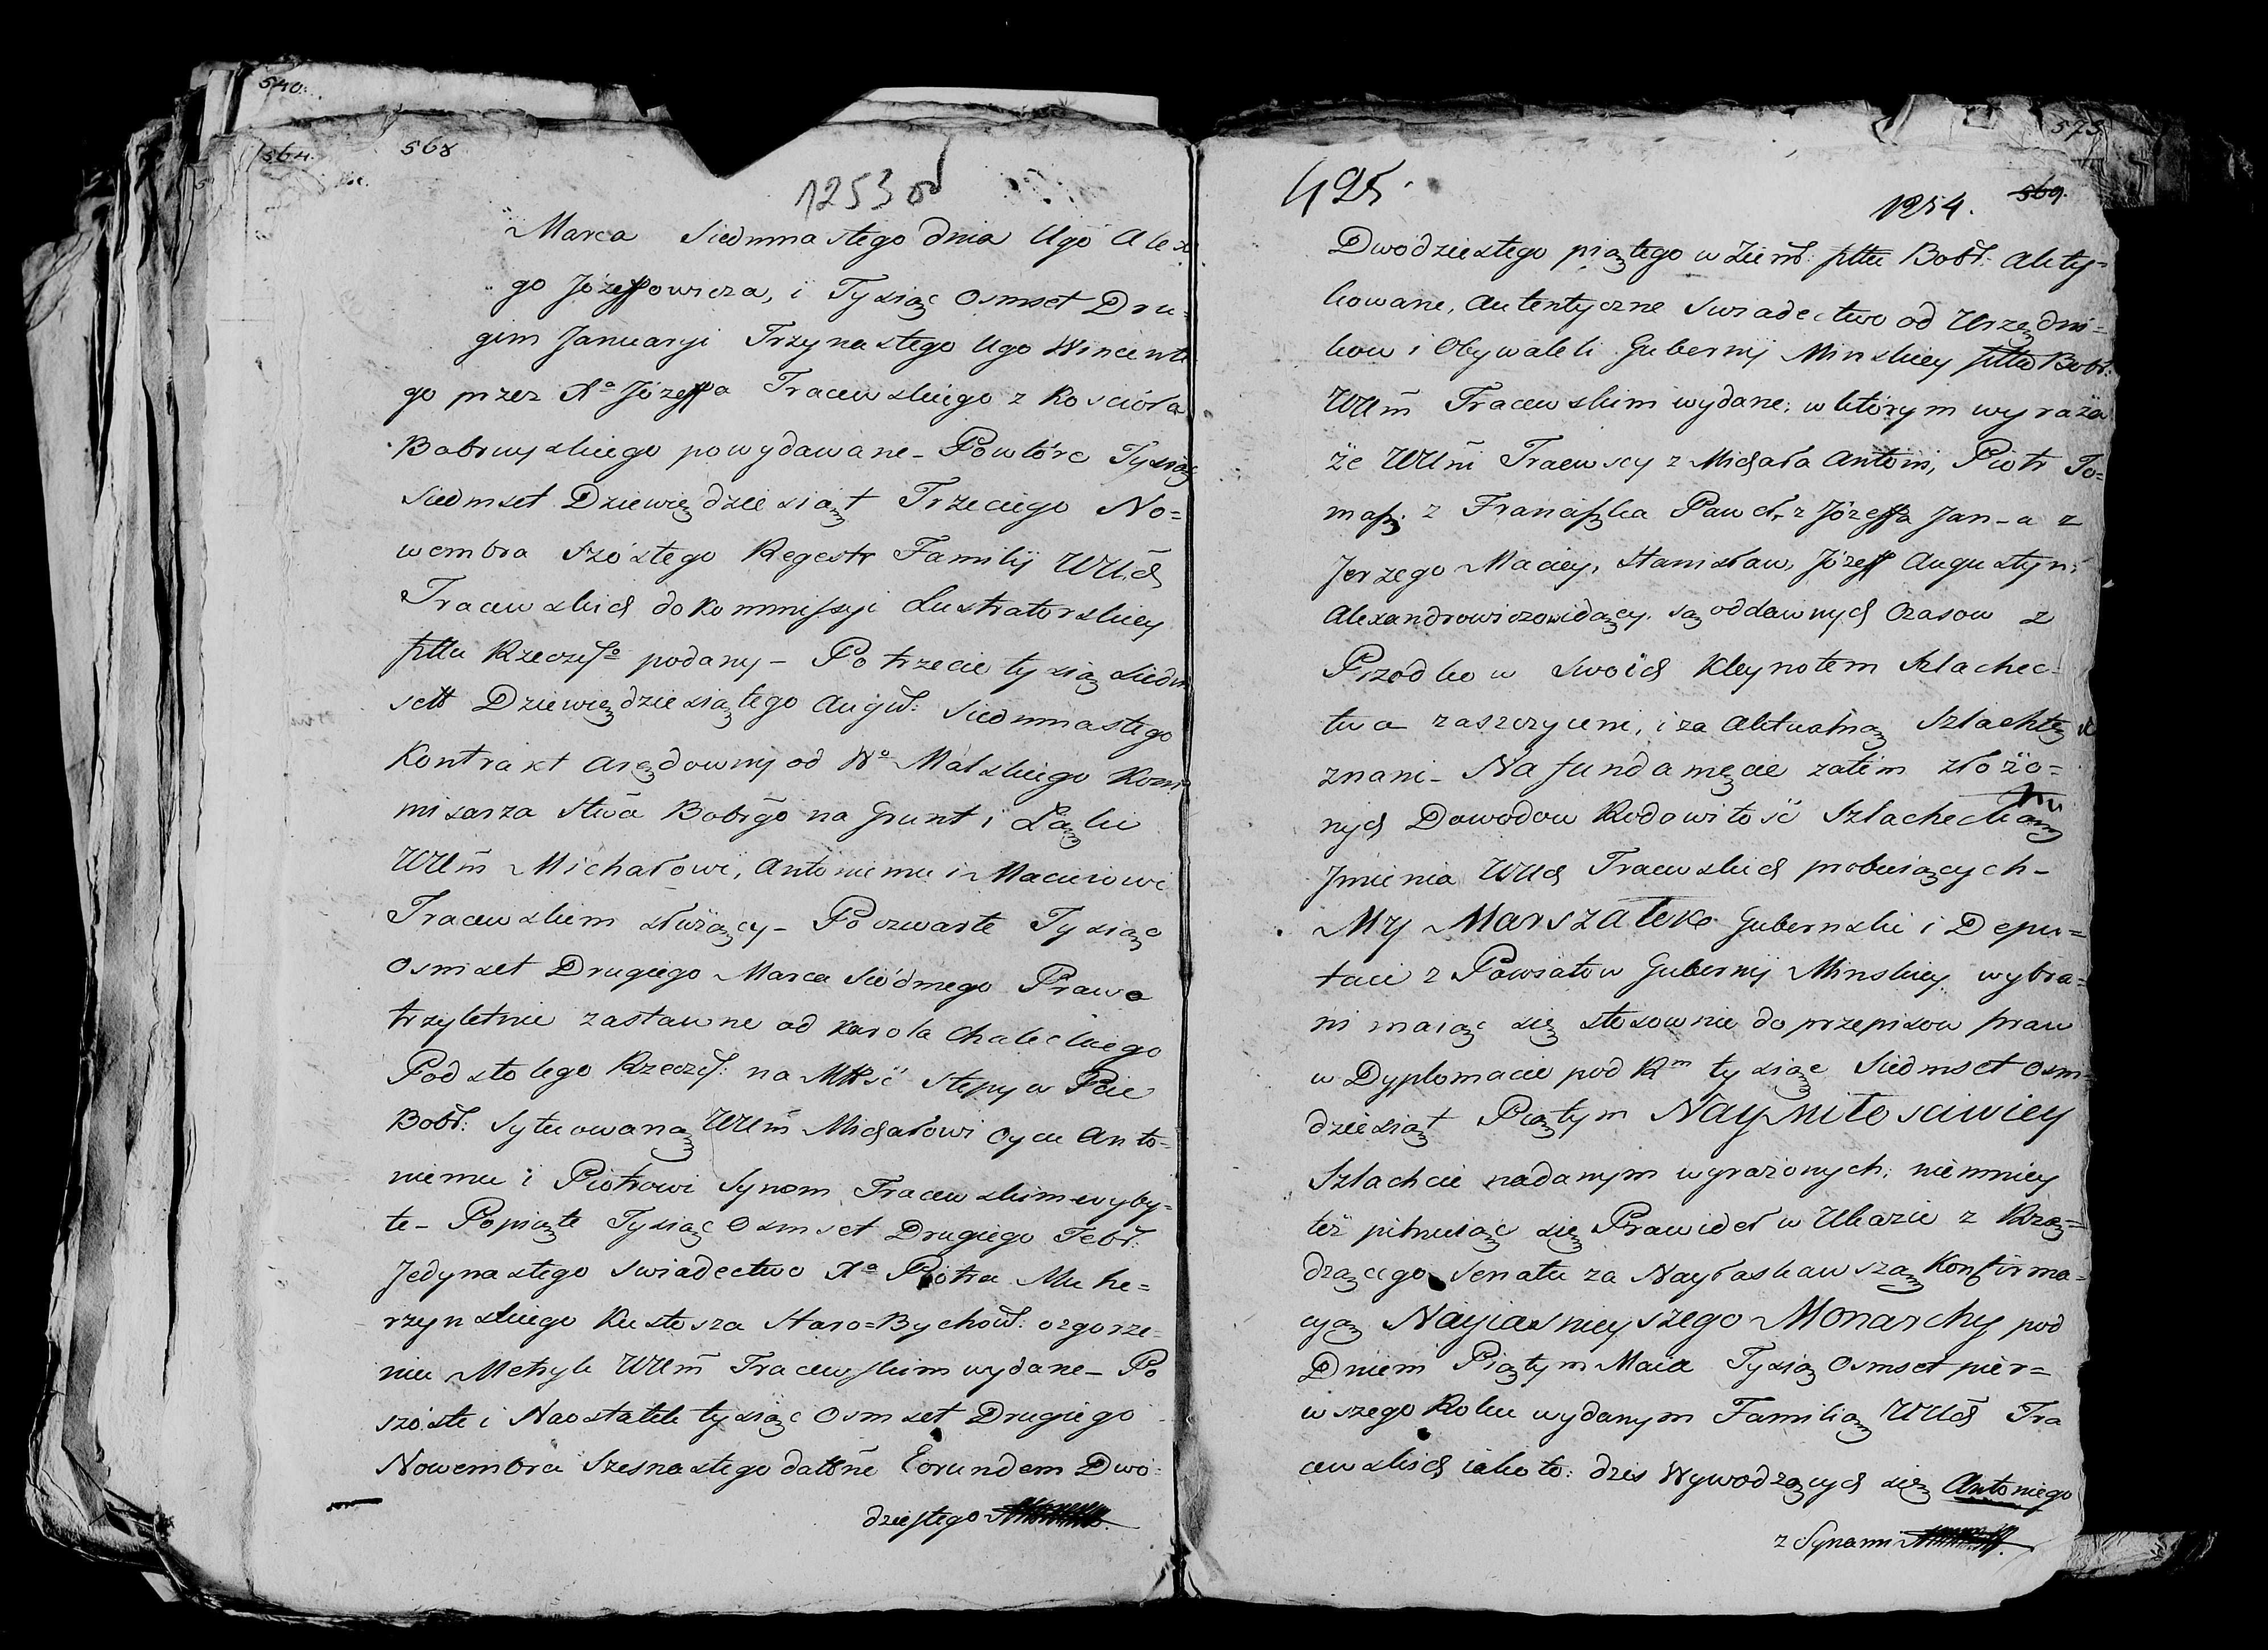 540.
564.
568
1253
Marca Siedmnastego dnia Ugo Alex
go Józeffowicza, i Tysiąc Osmset Dru=
gim Januaryi Trzynastego Ugo Wincente
go przez Xa Józeffa Tracewskiego z Kościoła
Bobruyskiego powydawane - Powtóre Tysiąc
Siedmset Dziewiędziesiąt Trzeciego No=
wembra Szóstego Regestr Familij WUch
Tracewskich do Kommissyi Lustratorskiey
pttu Rzeczgo podany - Potrzecie tysiąc Siedm
sett Dziewiędziesiątego Augu: Siedmnastego
Kontrakt Arędowny od Wo Malskiego Kom
misarza Stwa Bobrgo na Grunt i Łąki
WUm Michałowi, Antoniemu i Macieiowi
Tracewskim służący - Poczwarte Tysiąc
Osmset Drugiego Marca Siódmego Prawo
trzyletnie zastawne od Karola Chaleckiego
Podstolego Rzeczy: na Mtść Stepy w Pcie
Bobr: Sytuowaną WUm Michałowi Oycu Anto=
niemu i Piotrowi Synom Tracewskim wyby=
te - Popiąte Tysiąc Osmset Drugiego Febr:
Jedynastego Swiadectwo Xa Piotra Muke=
rzynskiego Kustosza Staro=Bychow: ozgorze=
niu Metryk WUm Tracewskim wydane - Po
szóste i Naostatek tysiąc Osmset Drugiego
Nowembra Szesnastego dattne Eorundem Dwó=
dziestego
573
425.
1254.
569.
Dwódziestego piątego w Ziem: pttu Bobr: Akty=
kowane, Autentyczne Swiadectwo od Urzędni=
kow i Obywateli Gubernij Minskiey pttu Bobr:
WUm Tracewskim wydane; w którym wyraża
że WUni Tracewscy z Michała Antoni, Piotr To=
masz, z Franciszka Paweł, z Józeffa Jan - a z
Jerzego Maciey, Stanisław, Józeff Augustyn
Alexandrowiczowidący. są oddawnych Czasow z
Przódkow Swoich Kleynotem Szlachec=
twa zaszczyceni, i za Aktualną Szlachtę
znani - Na fundamęcie zatim złożo=
nych Dowodow Rodowitość Szlachecką
Jmienia WUch Tracewskich probuiących -
My Marszałek Gubernski i Depu=
taci z Powiatow Gubernij Minskiey wybra=
ni maiąc się stosownie do przepisow praw
w Dyplomacie pod Rm tysiąc Siedmset Osm=
dziesiąt Piątym Naymiłościwiey
Szlachcie nadanym wyrażonych; niemniey
też pilnuiąc się Prawideł w Ukazie z Rzą=
dzącego Senatu za Nayłaskawszą Konfirma=
cyą Nayiasnieyszego Monarchy pod
Dniem Piątym Maia Tysiąc Osmset pier=
wszego Roku wydanym Familią WUch Tra
cewskich iakoto: dzis Wywodzących się Antoniego
z Synami